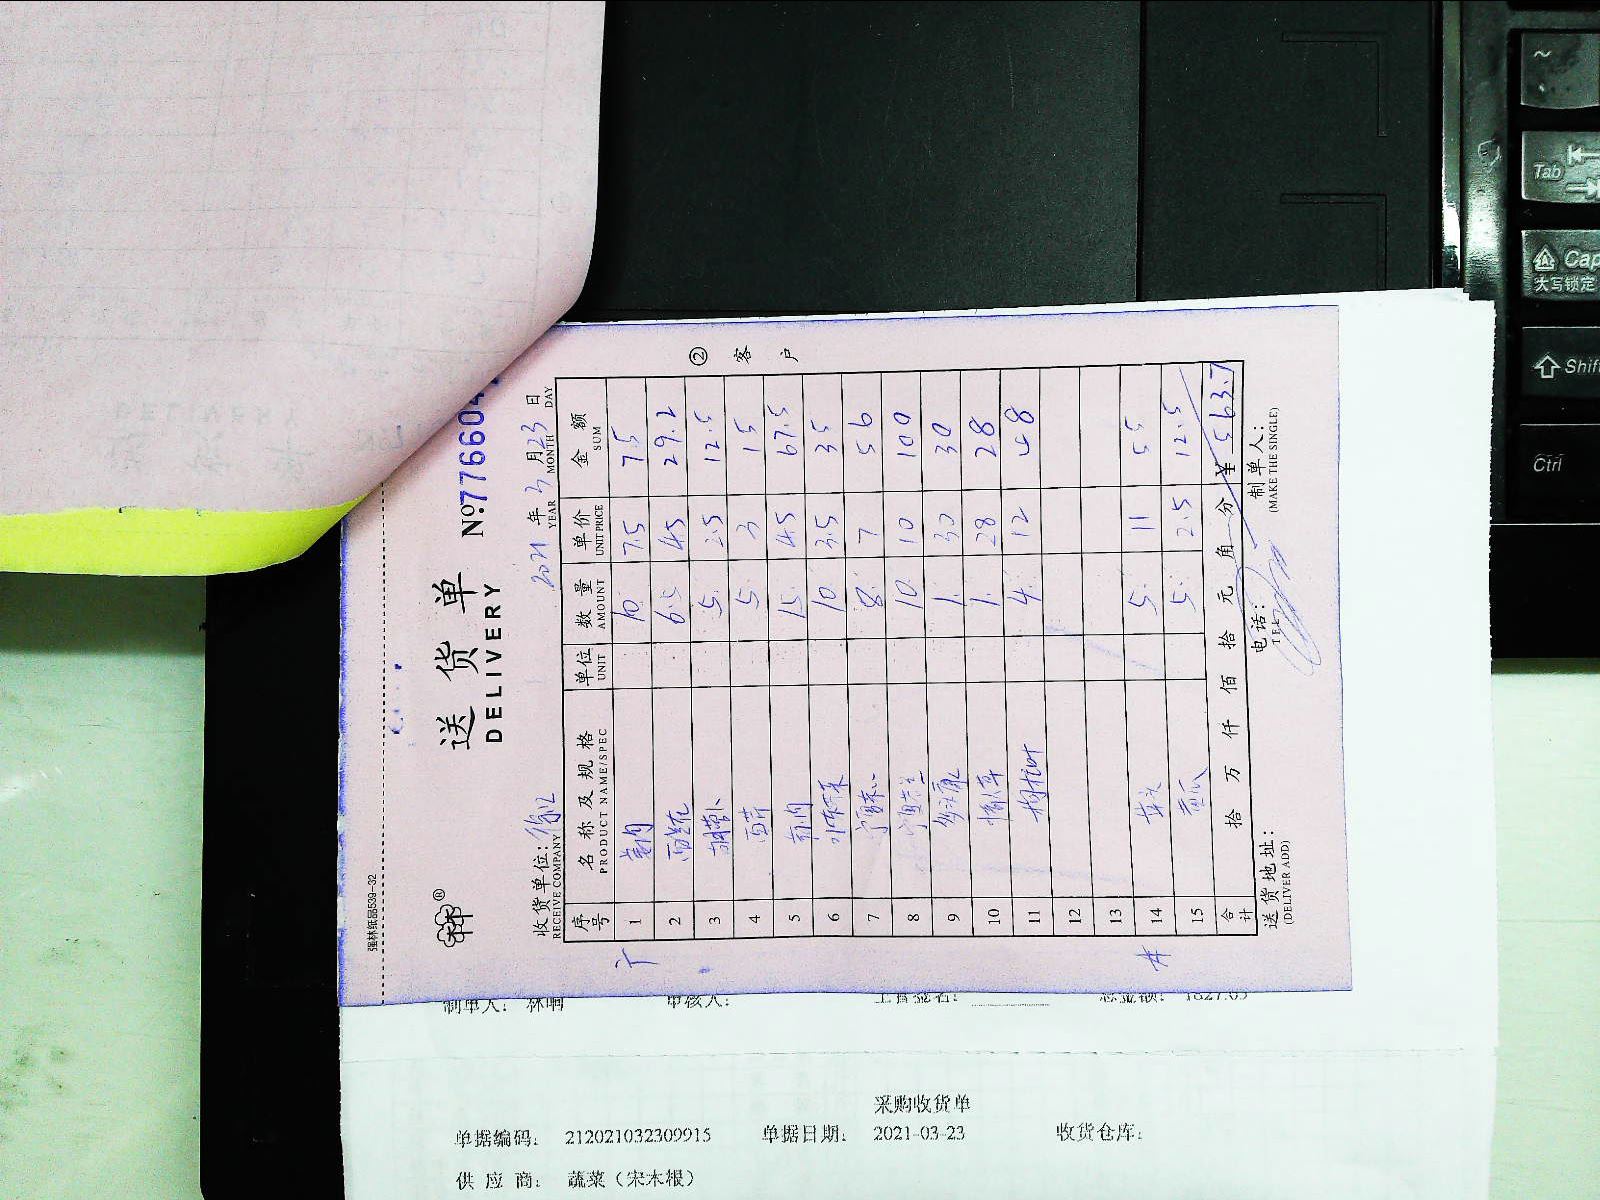 强林纸品539-32
送货单
DELIVERY
№776604
收货单位:
RECEIVE COMPANY
2021 年 3 月 23 日
YEAR MONTH DAY
② 客户
序号 名称及规格 单位 数量 单价 金额
PRODUCT NAME/SPEC UNIT AMOUNT UNIT PRICE SUM
1 10 7.5 75
2 西兰花 6.5 4.5 29.2
3 胡萝卜 5 2.5 12.5
4 西芹 5 3 15
5 15 4.5 67.5
6 10 3.5 35
7 8 7 56
8 10 10 100
9 1 30 30
10 1 28 28
11 4 12 48
12
13
14 5 11 55
15 黄瓜 5 2.5 12.5
合计 拾 万 仟 佰 拾 元 角 分 ¥563.7
送货地址: 电话: 制单人:
(DELIVER ADD) TEL (MAKE THE SINGLE)
制单人: 审核人: 主管签名: 总金额: 1627.05
采购收货单
单据编码: 212021032309915 单据日期: 2021-03-23 收货仓库:
供应商: 蔬菜(宋木根)
~
Tab
Cap
大写锁定
Shift
Ctrl